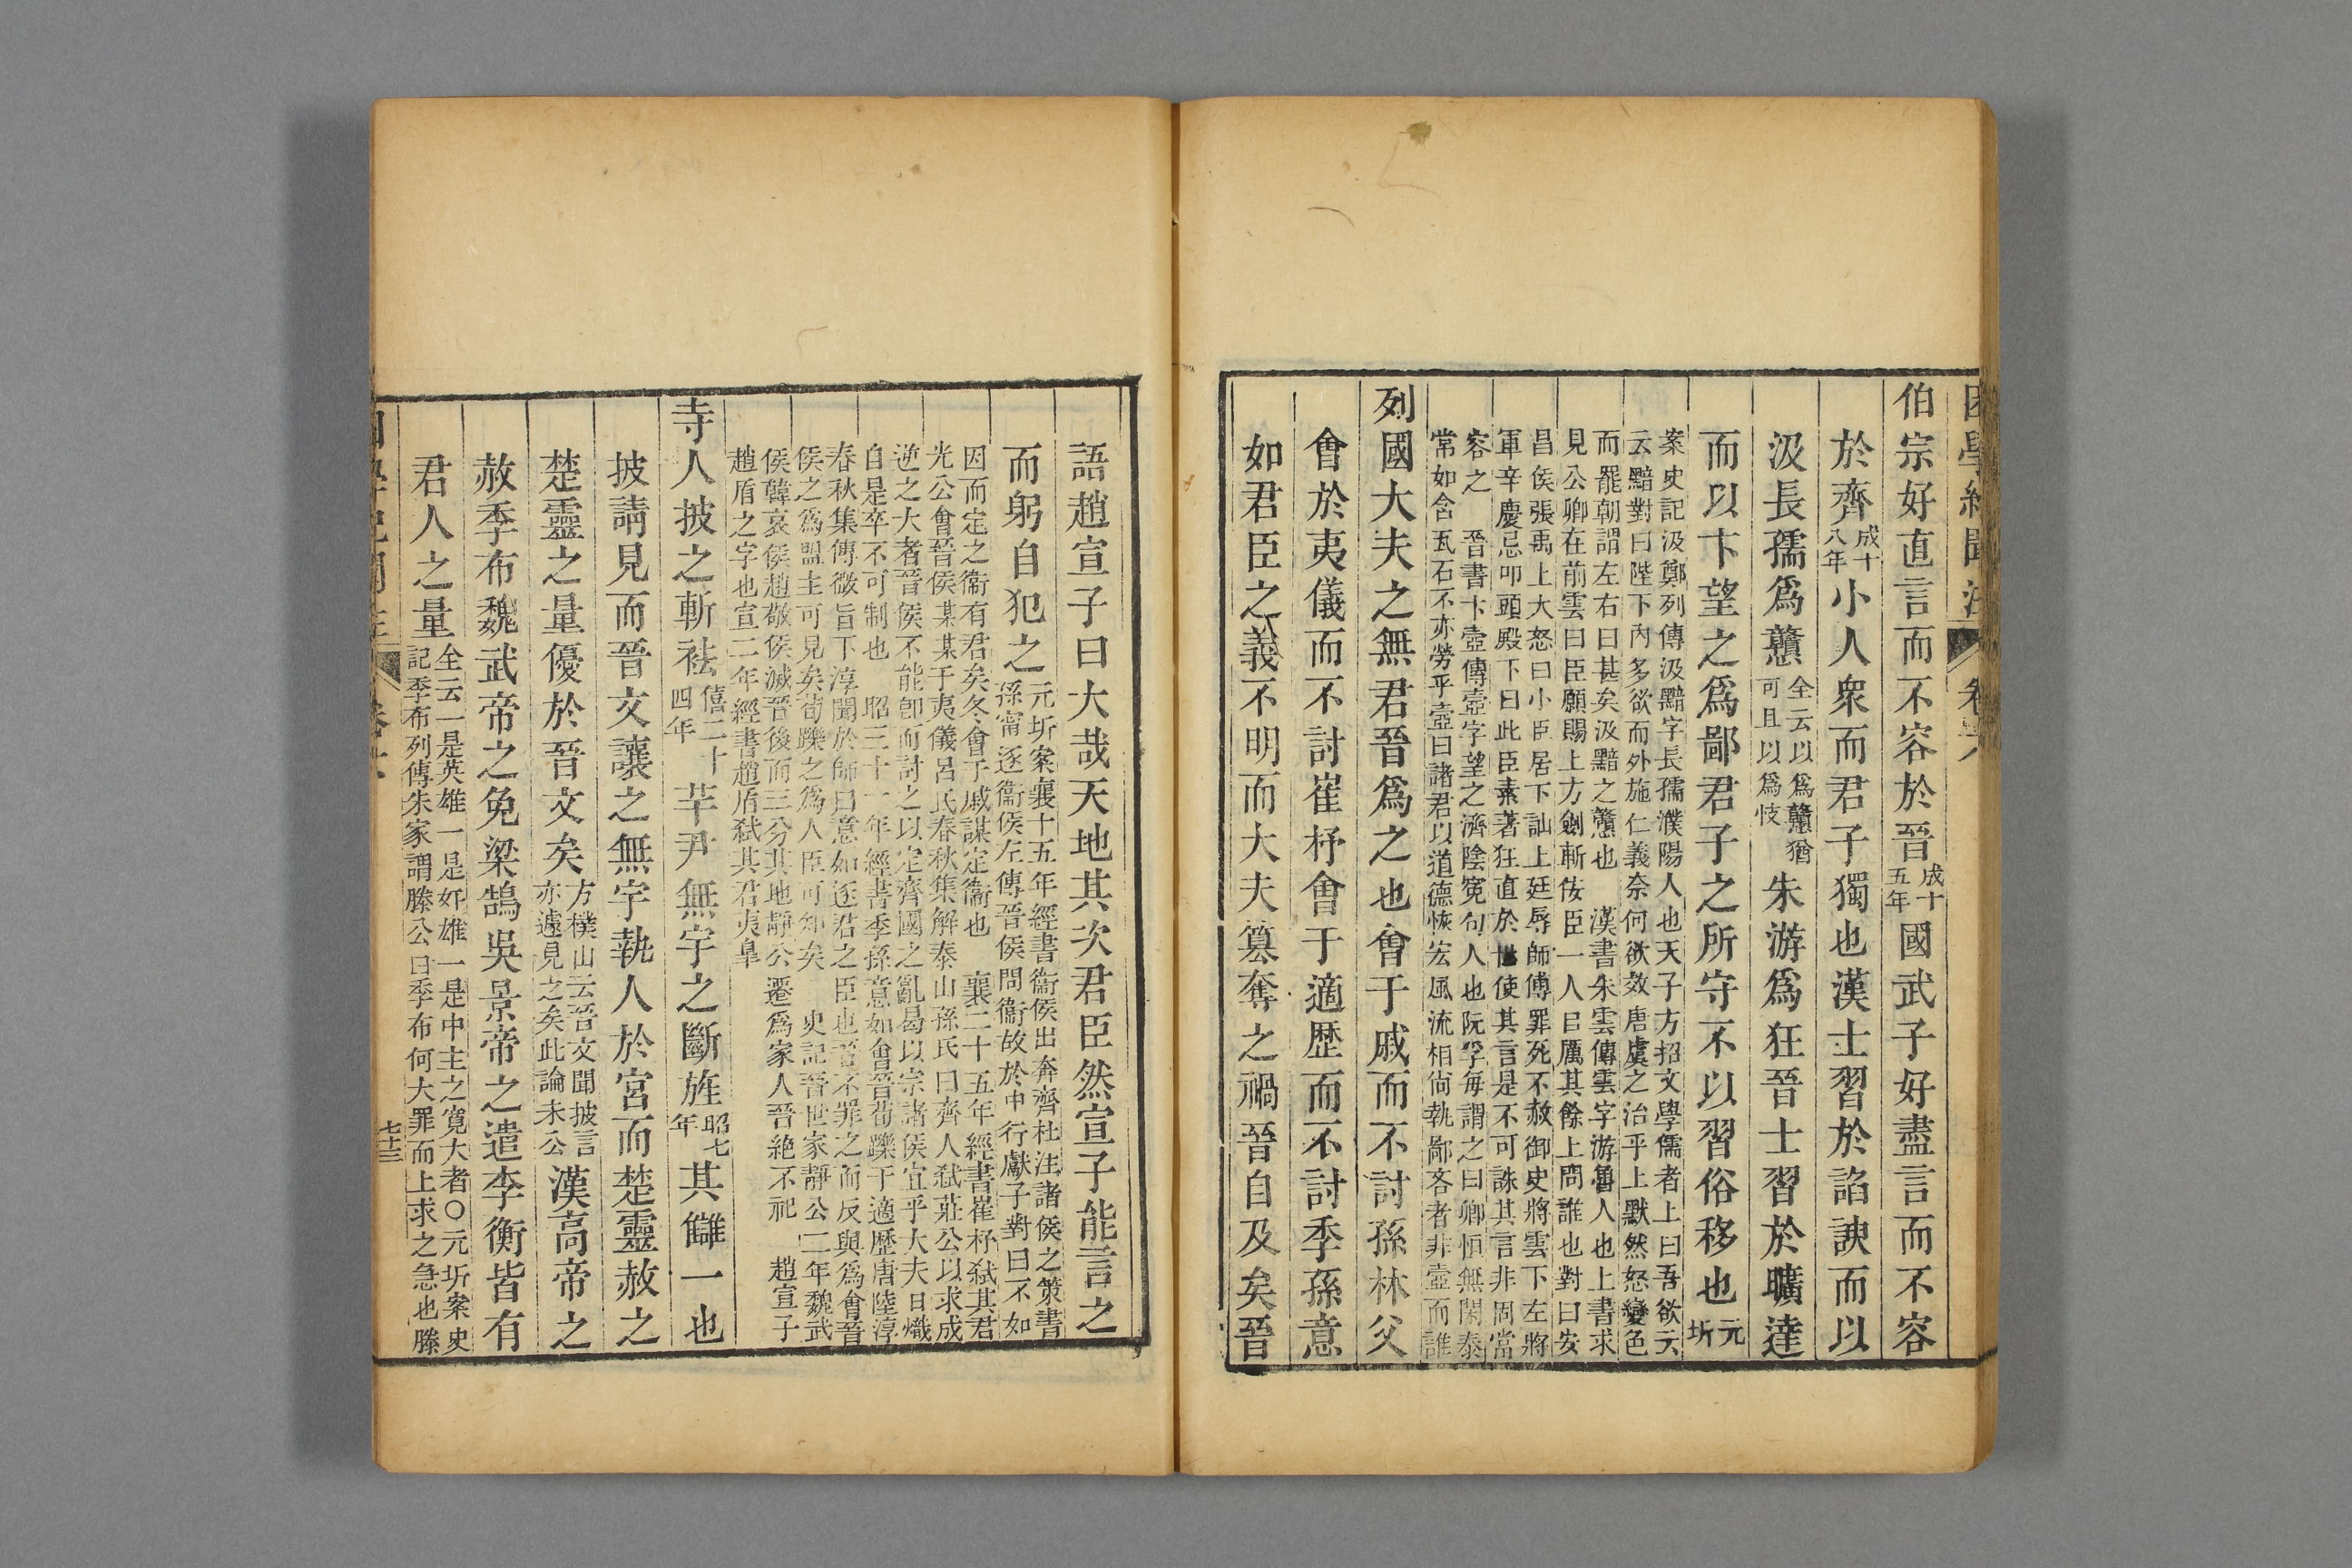 伯宗好直言而不容於晉成十五年國武子好盡言而不容
於齊成十八年小人衆而君子獨也漢士習於諂諛而以
汲長孺爲戇全云以爲戇猶可且以爲忮朱游爲狂晉士習於曠達
而以卞望之爲鄙君子之所守不以習俗移也元圻
案史記汲鄭列傳汲黯字長孺濮陽人也天子方招文學儒者上曰吾欲云
云黯對曰陛下內多欲而外施仁義奈何欲效唐虞之治乎上默然怒變色
而罷朝謂左右曰甚矣汲黯之戇也 漢書朱雲傳雲字游魯人也上書求
見公卿在前雲曰臣願賜上方劍斬佞臣一人以厲其餘上問誰也對曰安
昌侯張禹上大怒曰小臣居下訕上廷辱師傅罪死不赦御史將雲下左將
軍辛慶忌叩頭殿下曰此臣素著狂直於世使其言是不可誅其言非固當
容之 晉書卞壼傳壼字望之濟陰冤句人也阮孚每謂之曰卿恒無閑泰
常如含瓦石不亦勞乎壼曰諸君以道德恢宏風流相尙執鄙吝者非壼而誰
列國大夫之無君晉爲之也會于戚而不討孫林父
會於夷儀而不討崔杼會于適歷而不討季孫意
如君臣之義不明而大夫簒奪之禍晉自及矣晉
語趙宣子曰大哉天地其次君臣然宣子能言之
而躬自犯之元圻案襄十五年經書衞侯出奔齊杜注諸侯之策書
孫甯逐衞侯左傳晉侯問衞故於中行獻子對曰不如
因而定之衞有君矣冬會于戚謀定衞也 襄二十五年經書崔杼弒其君
光公會晉侯某某于夷儀呂氏春秋集解泰山孫氏曰齊人弒莊公以求成
逆之大者晉侯不能卽而討之以定齊國之亂曷以宗諸侯宜乎大夫日熾
自是卒不可制也 昭三十一年經書季孫意如會晉荀躒于適歷唐陸淳
春秋集傳微旨下淳聞於師曰意如逐君之臣也晉不罪之而反與爲會晉
侯之爲盟主可見矣荀躒之爲人臣可知矣 史記晉世家靜公二年魏武
侯韓哀侯趙敬侯滅晉後而三分其地靜公遷爲家人晉絶不祀 趙宣子
趙盾之字也宣二年經書趙盾弒其君夷臯
寺人披之斬袪僖二十四年芊尹無宇之斷旌昭七年其讎一也
披請見而晉文讓之無宇執人於宮而楚靈赦之
楚靈之量優於晉文矣方樸山云晉文聞披言亦遽見之矣此論未公漢高帝之
赦季布魏武帝之免梁鵠吳景帝之遣李衡皆有
君人之量全云一是英雄一是奸雄一是中主之寬大者○元圻案史
記季布列傳朱家謂滕公曰季布何大罪而上求之急也滕
七十三